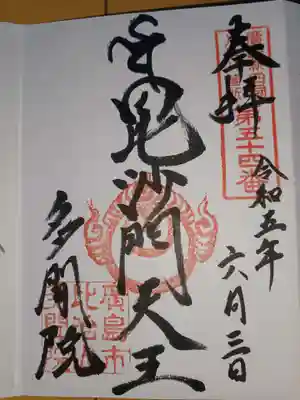 奉拝
第五十四番
令和五年
六月三日
毘沙門天王
多聞院
廣島市
比治山
多聞院